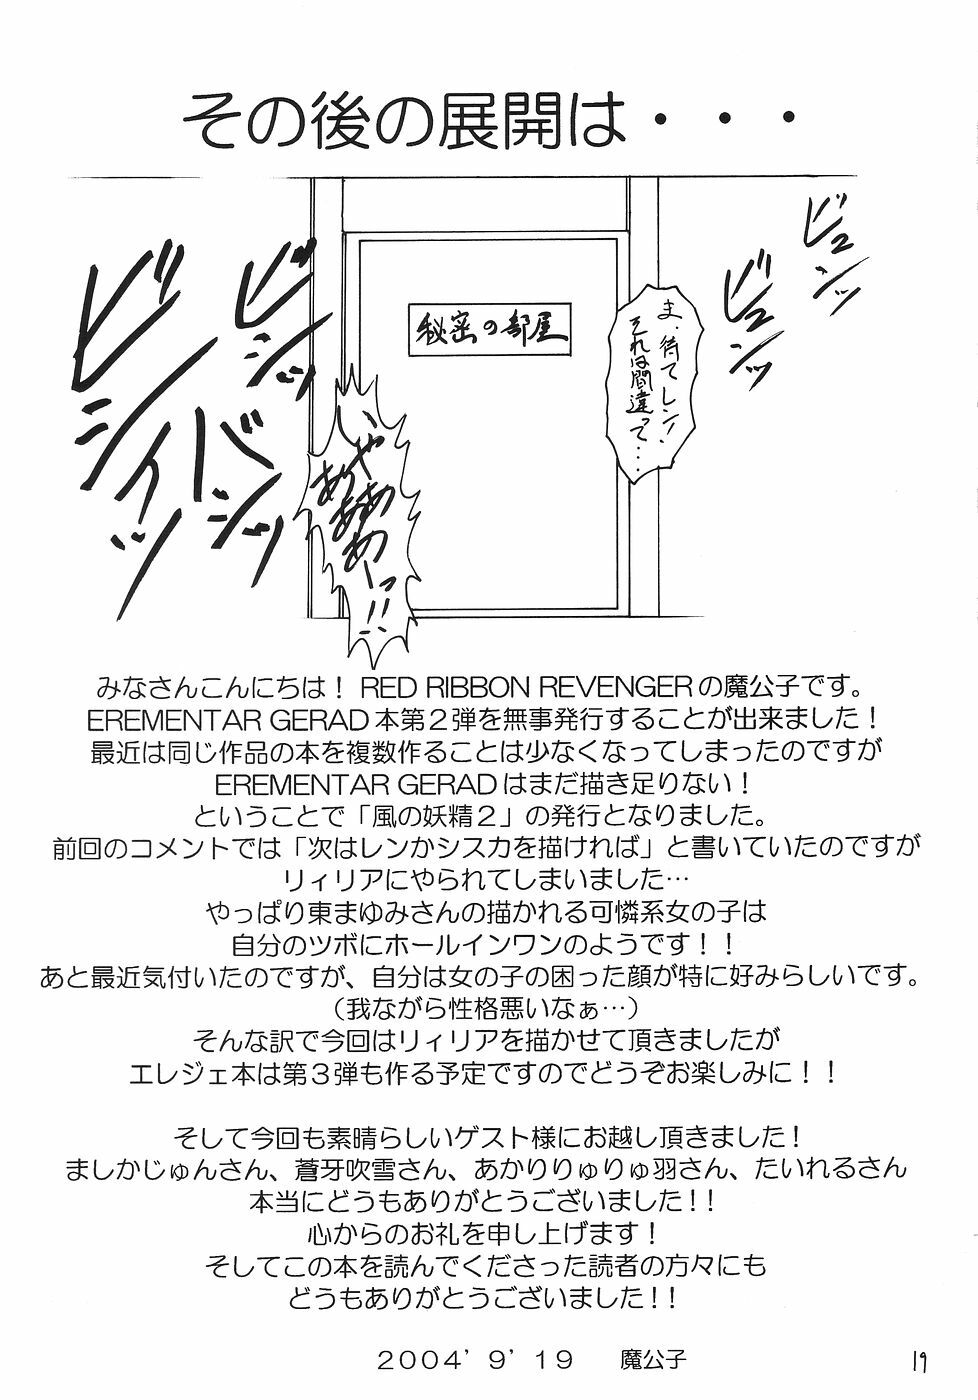 その後の展開は・・・
ビュンッ
ビュンッ
ま、待てレン！
それは間違って・・・・
秘密の部屋
ビシッ
いやあああ
あああーっ！！
バシッ
ビシィッ
みなさんこんにちは！ RED RIBBON REVENGERの魔公子です。
EREMENTAR GERAD本第２弾を無事発行することが出来ました！
最近は同じ作品の本を複数作ることは少なくなってしまったのですが
EREMENTAR GERADはまだ描き足りない！
ということで「風の妖精２」の発行となりました。
前回のコメントでは「次はレンかシスカを描ければ」と書いていたのですが
リィリアにやられてしまいました…
やっぱり東まゆみさんの描かれる可憐系女の子は
自分のツボにホールインワンのようです！！
あと最近気付いたのですが、自分は女の子の困った顔が特に好みらしいです。
（我ながら性格悪いなぁ…）
そんな訳で今回はリィリアを描かせて頂きましたが
エレジェ本は第３弾も作る予定ですのでどうぞお楽しみに！！
そして今回も素晴らしいゲスト様にお越し頂きました！
ましかじゅんさん、蒼牙吹雪さん、あかりりゅりゅ羽さん、たいれるさん
本当にどうもありがとうございました！！
心からのお礼を申し上げます！
そしてこの本を読んでくださった読者の方々にも
どうもありがとうございました！！
２００４’９’１９　魔公子
19